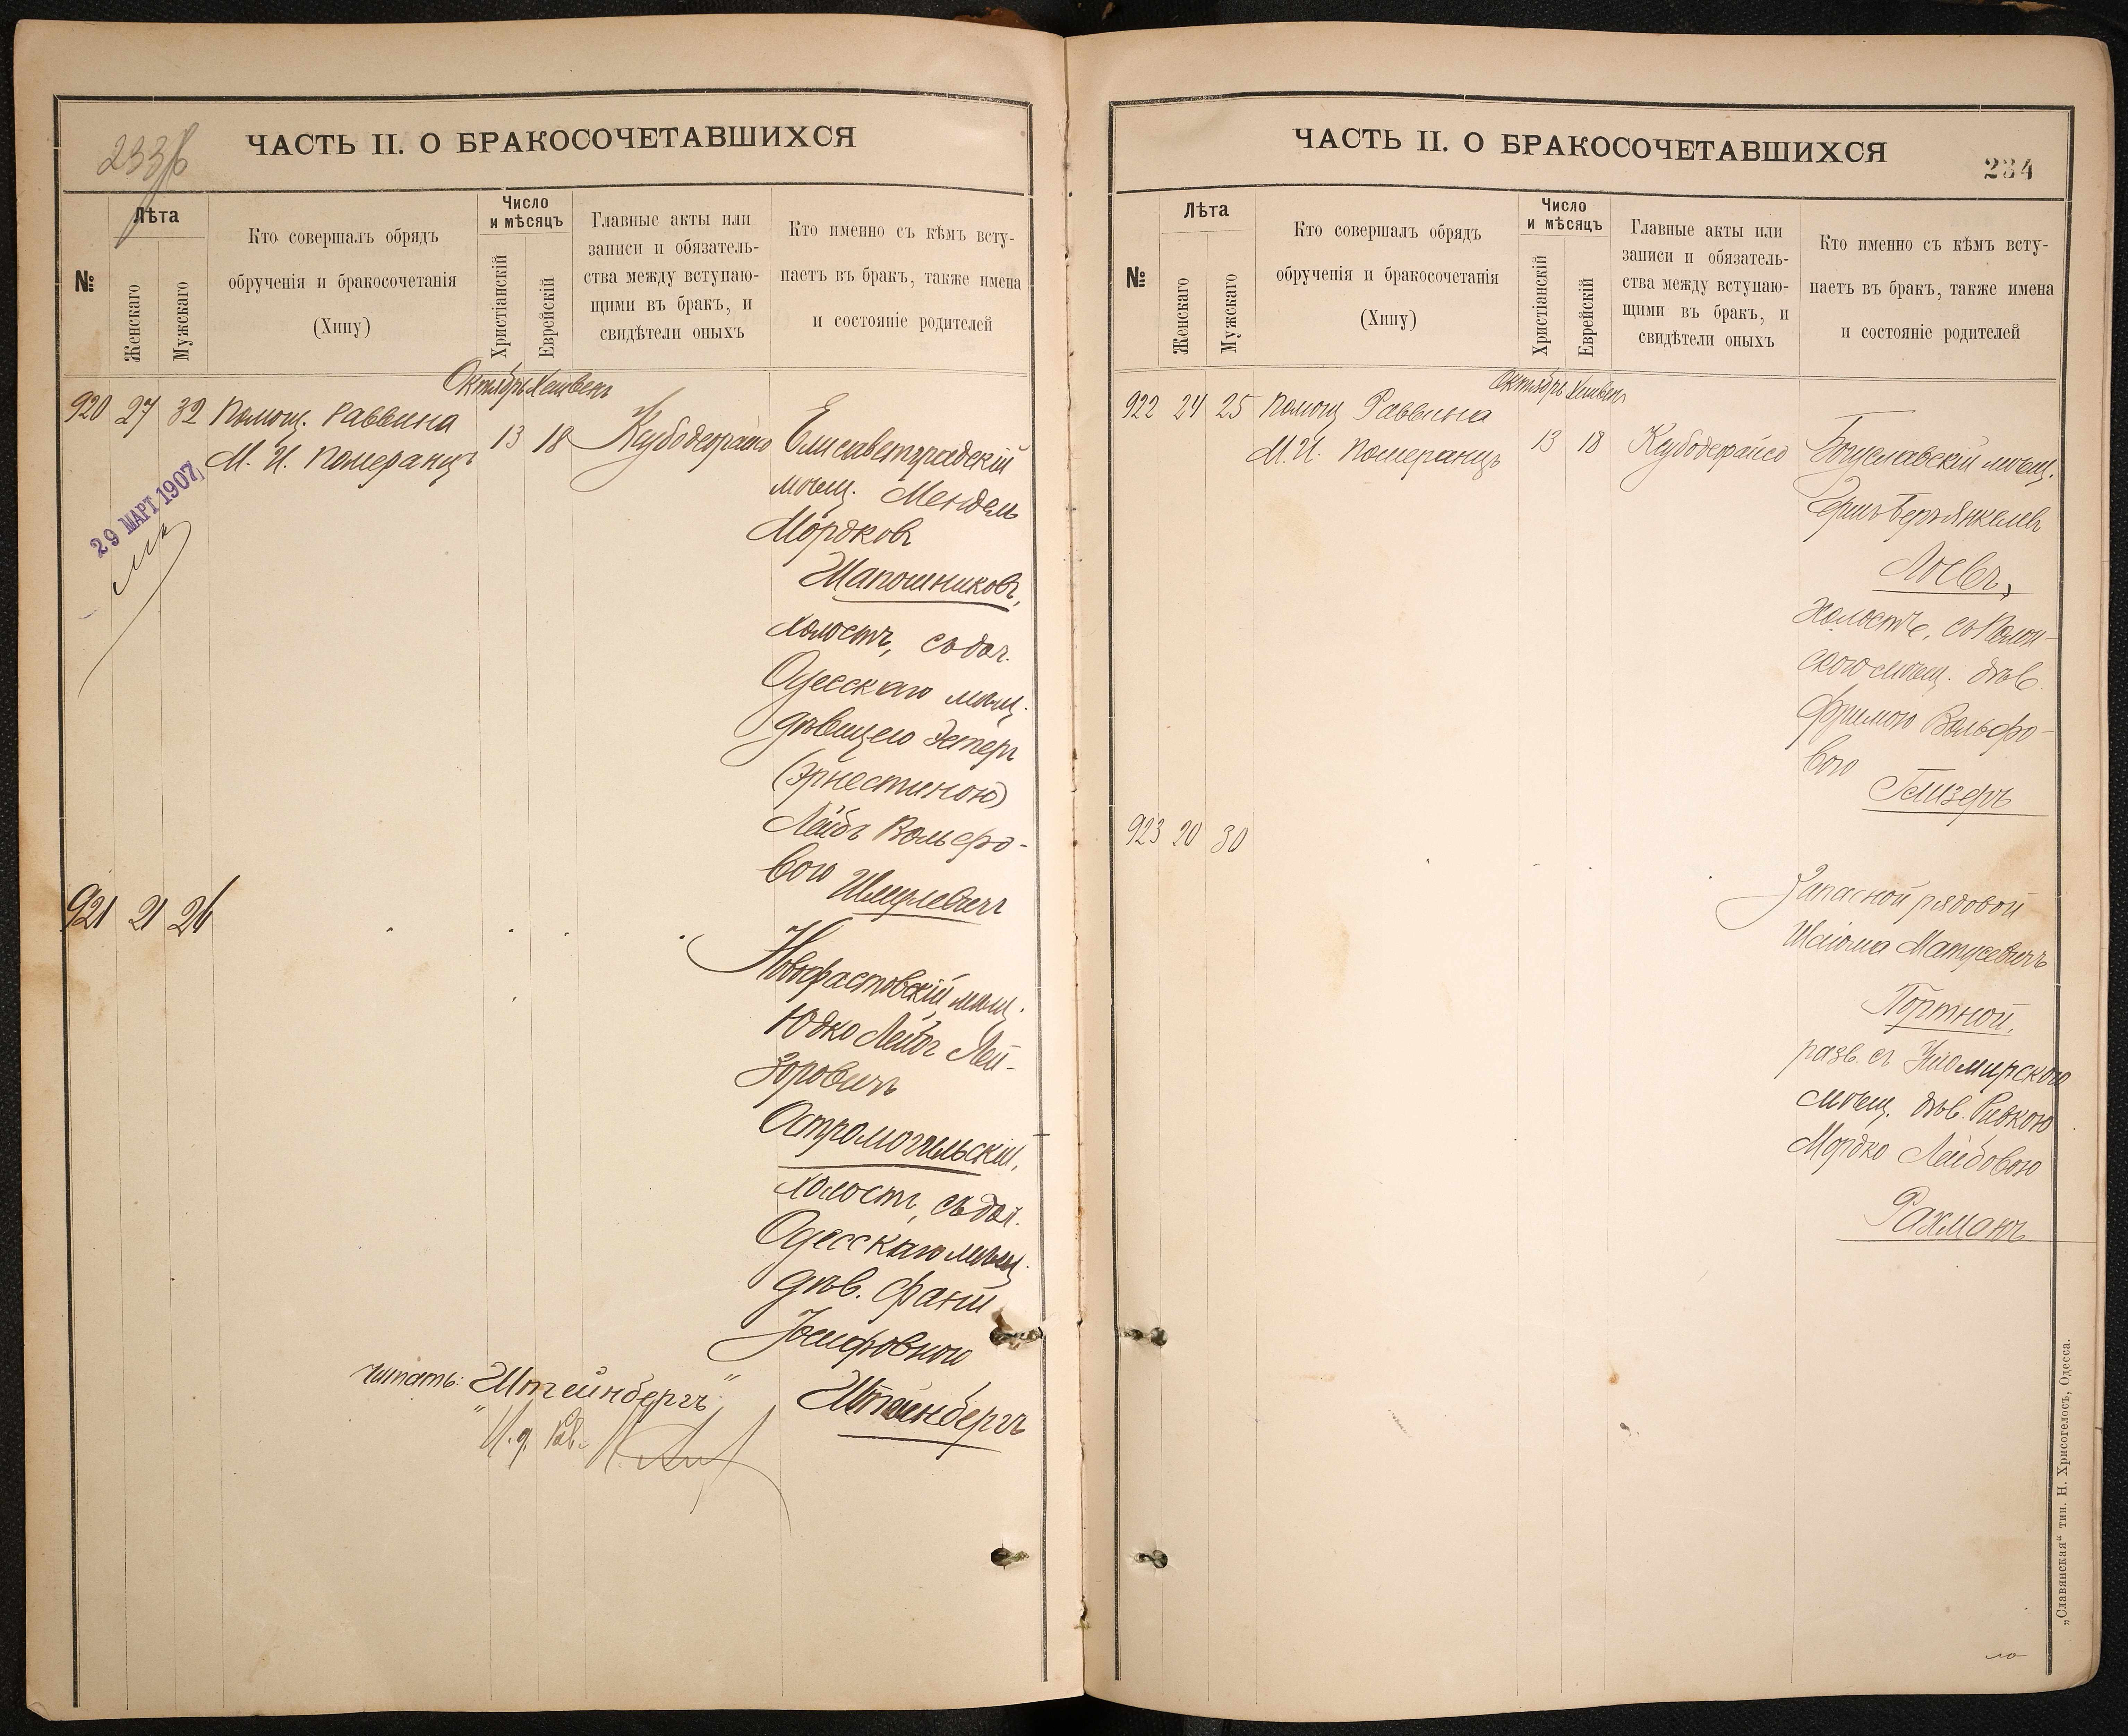 233
ЧАСТЬ II. О БРАКОСОЧЕТАВШИХСЯ
№
Лѣта
Женскаго
Мужскаго
Кто совершалъ обрядъ
обрученія и бракосочетанія
(Хипу)
Число
и мѣсяцъ
Христіанскій
Еврейскій
Главные акты или
записи и обязатель-
ства между вступаю-
щими въ бракъ, и
свидѣтели оныхъ
Кто именно съ кѣмъ всту-
паетъ въ бракъ, также имена
и состояніе родителей
Октябрь Хешвенъ
920 27 32 Помощ. Раввина
М. И. Померанцъ
13 18
Елисаветградскій
мѣщ. Мендель
Мордковъ
Шапошниковъ,
холостъ, съ доч.
Одесскаго мѣщ.
дѣвицею Эстеръ
(Эрнестиною)
Лейбъ Вольфо-
вою
Шмулевичъ
29 МАРТ 1907
921 21 26
мѣщ.
Юдко Лейбъ Лей-
зоровичъ
Остромогильскій,
холостъ, съ доч.
Одесскаго мѣщ.
дѣв. Фани
Іосифовною
Штейнбергъ
читать: „Штейнбергъ“
И. д. Рав.
ЧАСТЬ II. О БРАКОСОЧЕТАВШИХСЯ
234
№
Лѣта
Женскаго
Мужскаго
Кто совершалъ обрядъ
обрученія и бракосочетанія
(Хипу)
Число
и мѣсяцъ
Христіанскій
Еврейскій
Главные акты или
записи и обязатель-
ства между вступаю-
щими въ бракъ, и
свидѣтели оныхъ
Кто именно съ кѣмъ всту-
паетъ въ бракъ, также имена
и состояніе родителей
Октябрь Хешвенъ
922 24 25 Помощ Раввина
М. И. Померанцъ
13 18
Богуславскій мѣщ.
Гершъ Беръ Янкелевъ
Лоевъ,
холостъ, съ Полон-
скою мѣщ. дѣв.
Фримою Вольфо-
вою
Глизеръ
923 20 30
Запасной рядовой
Шліома Матусевичъ
Портной,
разв. съ
мѣщ. дѣв. Ривкою
Мордко Лейбовою
Рахманъ
„Славянская“ тип. Н. Хрисогелосъ, Одесса.